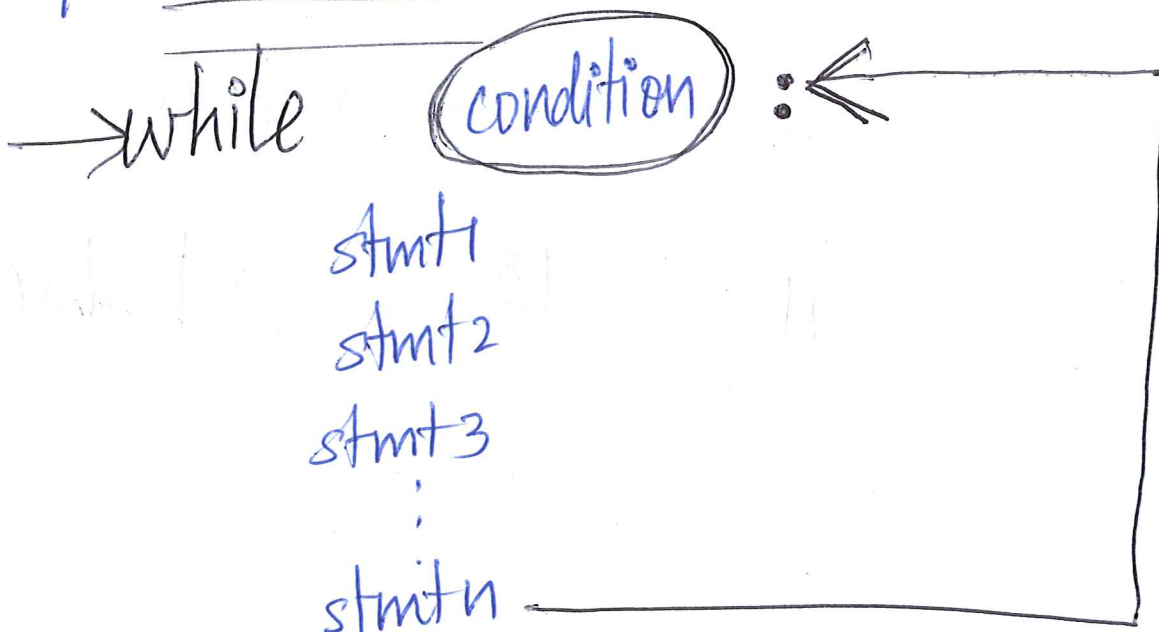 while condition :
stmt1
stmt2
stmt3
stmtn